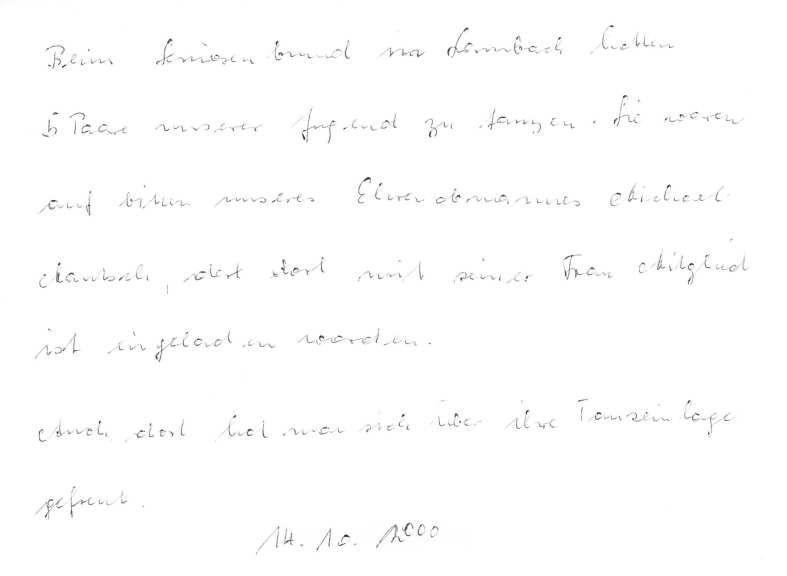 Beim Seniorenbund in Lambach hatten
5 Paare unserer Jugend zu tanzen. Sie waren
auf bitten unseres Ehrenobmannes Michael
, der dort mit seiner Frau Mitglied
ist eingeladen worden.
Auch dort hat man sich über ihre Tanzeinlage
gefreut.
14. 10. 2000